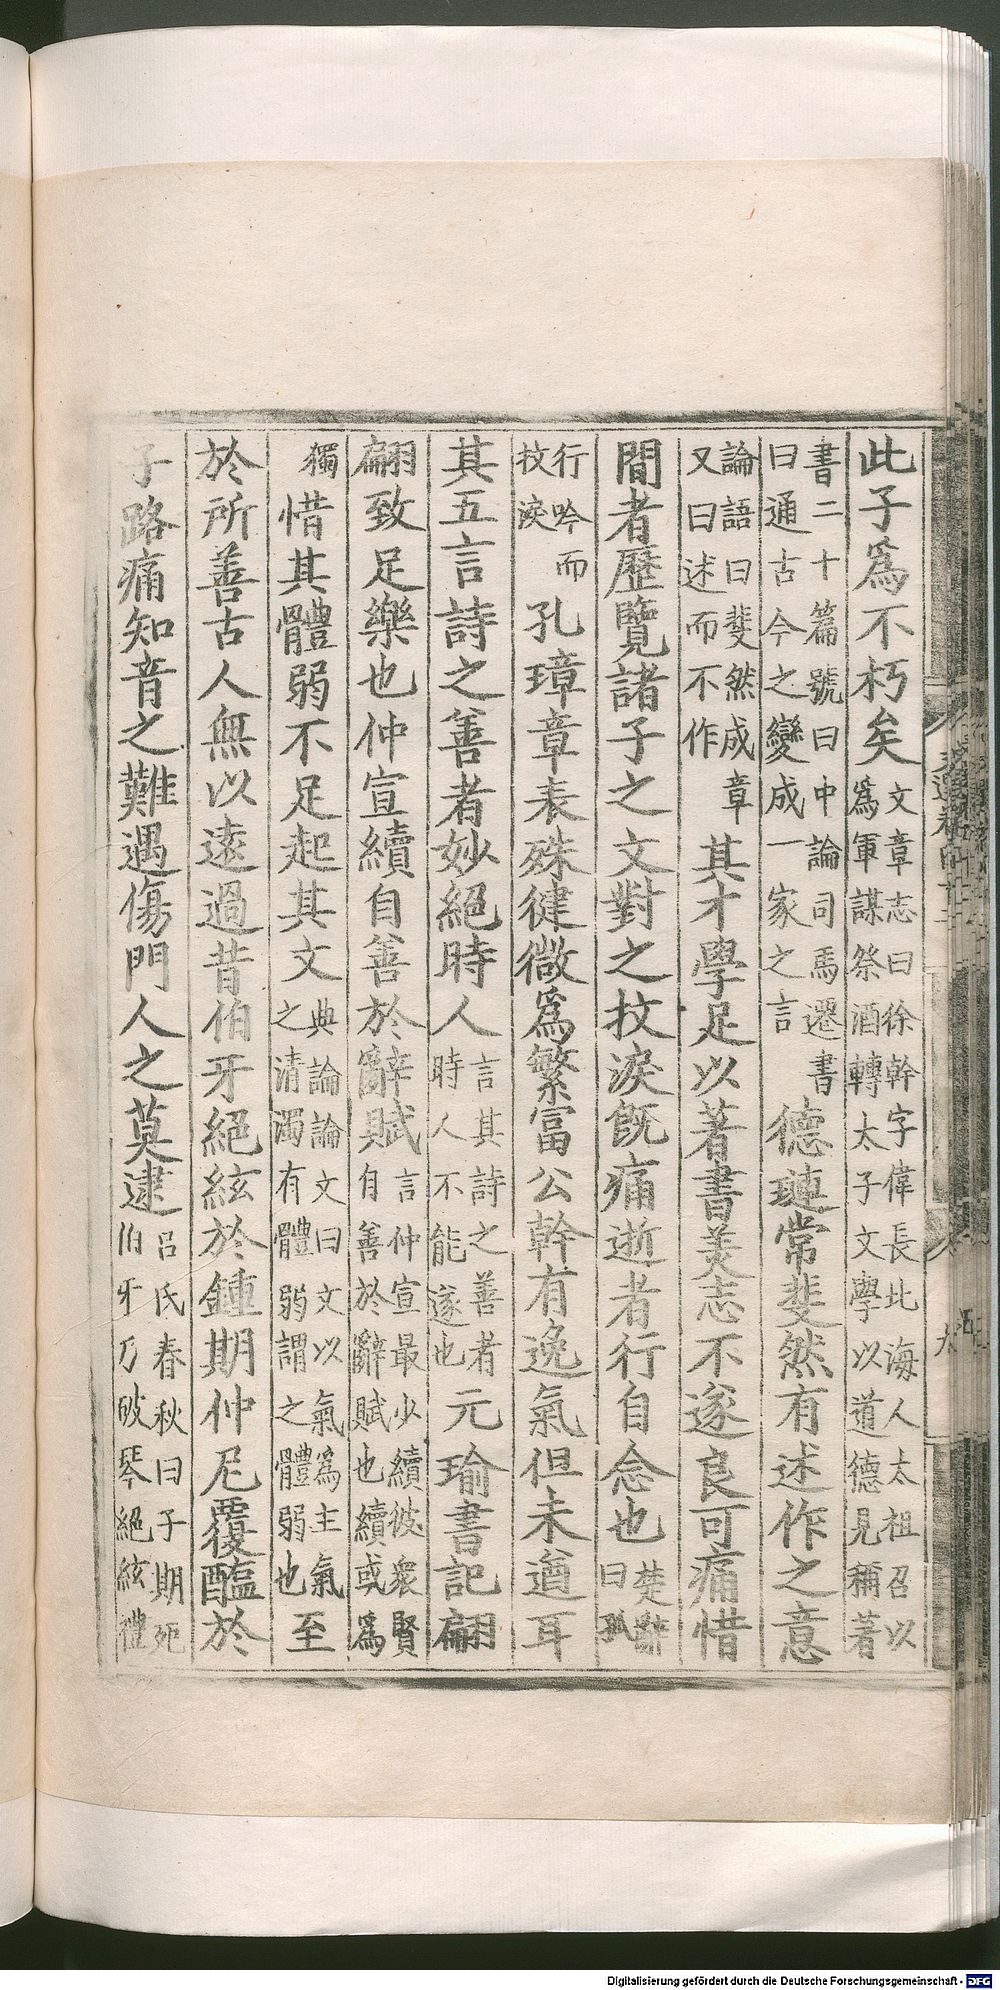 此子爲不朽矣文章志曰徐幹字偉長北海人太祖召以
爲軍謀祭酒轉太子文學以道德見稱著
書二十篇號曰中論司馬遷書
曰通古今之變成一家之言德璉常斐然有述作之意
論語曰斐然成章
又曰述而不作其才學足以著書美志不遂良可痛惜
間者歷覽諸子之文對之抆淚旣痛逝者行自念也楚辭
曰孤
行吟而
抆淚孔璋章表殊健微爲繁富公幹有逸氣但未遒耳
其五言詩之善者妙絕時人言其詩之善者
時人不能遂也元瑜書記翩
翩致足樂也仲宣續自善於辭賦言仲宣最少續彼衆賢
自善於辭賦也續或爲
獨惜其體弱不足起其文典論論文曰文以氣爲主氣
之清濁有體弱謂之體弱也至
於所善古人無以遠過昔伯牙絕絃於鍾期仲尼覆醢於
子路痛知音之難遇傷門人之莫逮呂氏春秋曰子期死
伯牙乃破琴絕絃禮
Digitalisierung gefördert durch die Deutsche Forschungsgemeinschaft - DFG